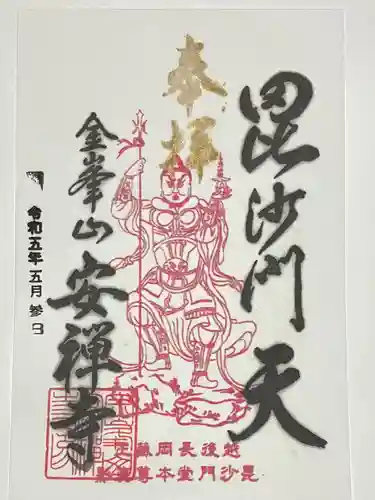 奉拝
毘沙門天
金峯山
安禅寺
令和五年五月参日
越後長岡藏王
毘沙門堂本尊